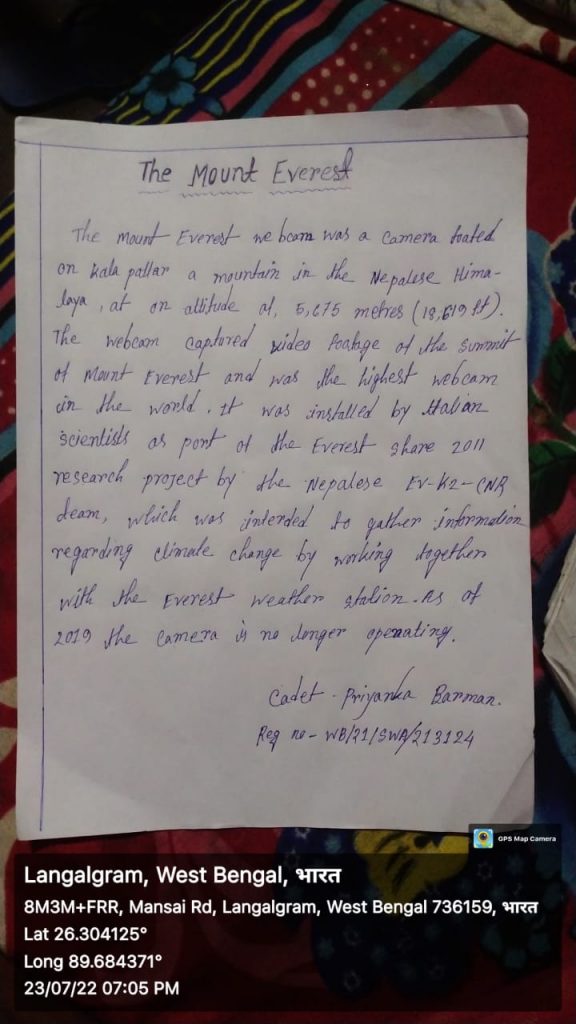 The Mount Everest
The mount Everest webcam was a camera loated
on kala pallar a mountain in the Nepalese Hima-
laya, at on altitude of, 5,675 metres (18,619 ft).
The webcam captured video footage of the summit
of Mount Everest and was the highest webcam
in the world. It was installed by Italian
scientists as part of the Everest share 2011
research project by the Nepalese EV-K2-CNR
team, which was intended to gather information
regarding climate change by working together
with the Everest weather station. As of
2019 the camera is no longer operating.
Cadet - Priyanka Barman.
Reg no - WB/21/SWA/213124
GPS Map Camera
Langalgram, West Bengal, भारत
8M3M+FRR, Mansai Rd, Langalgram, West Bengal 736159, भारत
Lat 26.304125°
Long 89.684371°
23/07/22 07:05 PM